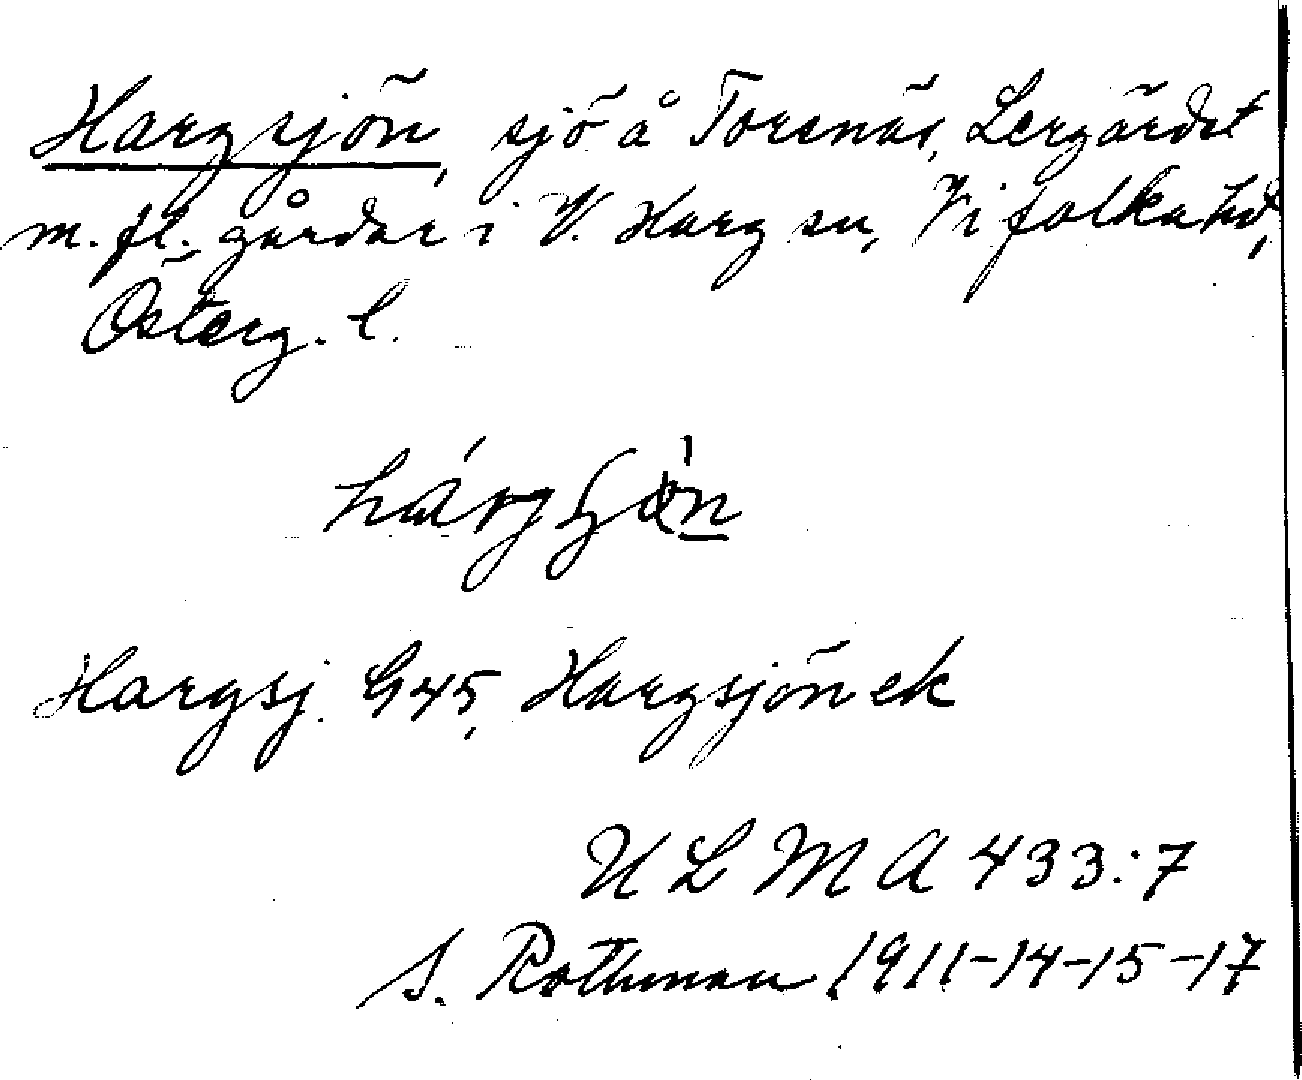 Hargsjön, sjö å Torsnäs, Lergärdet
m. fl. gårdar i V. Harg sn, Vifolka hd,
Österg. l.
Hargsj. G45, Hargsjön ek
ULMA 433:7
S. Rothman 1911-14-15-17